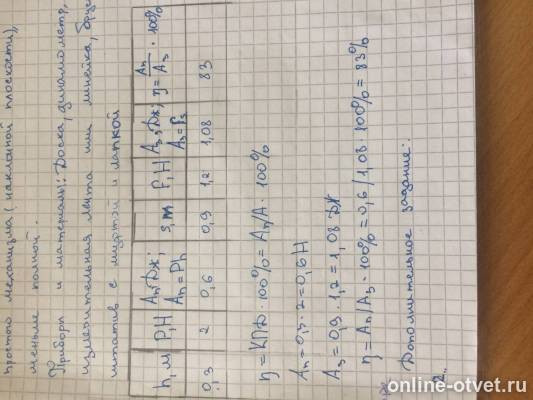 простого механизма (наклонной плоскости),
меньше полной.
Приборы и материалы: Доска, динамометр,
измерительная лента или линейка,
штатив с муфтой и лапкой
h, м | P, Н | Aп, Дж; Aп = Ph | s, м | F, Н | Aз, Дж; Aз = Fs | η = Aп/Aз · 100%
0,3 | 2 | 0,6 | 0,9 | 1,2 | 1,08 | 83
η = КПД · 100% = Aп/A · 100%
Aп = 0,3 · 2 = 0,6 Н
Aз = 0,9 · 1,2 = 1,08 Дж
η = Aп/Aз · 100% = 0,6/1,08 · 100% = 83%
Дополнительное задание:
2.
online-otvet.ru